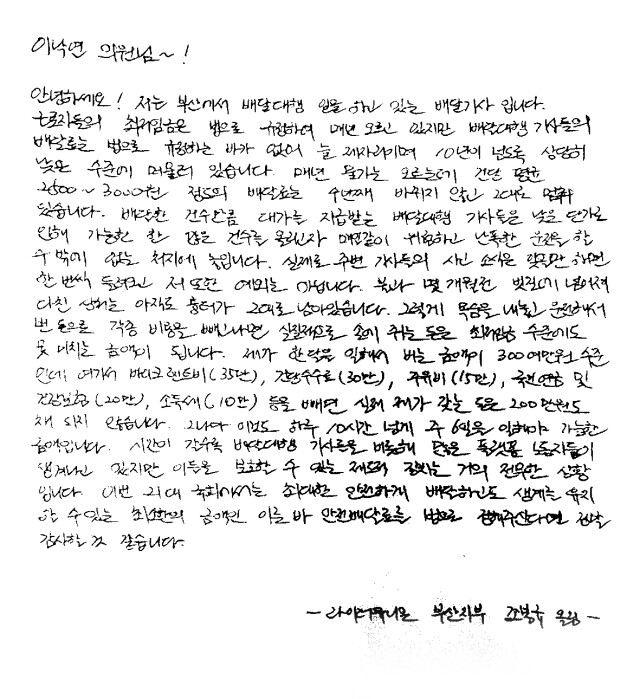 이낙연 의원님~!
안녕하세요! 저는 부산에서 배달대행 일을 하고 있는 배달기사 입니다.
근로자들의 최저임금은 법으로 규정하여 매년 오르고 있지만 배달대행 기사들의
배달료는 법으로 규정하는 바가 없어 늘 제자리이며 10년이 넘도록 상당히
낮은 수준에 머물러 있습니다. 매년 물가는 오르는데 건당 평균
2500~3000여원 정도의 배달료는 수년째 바뀌지 않고 그대로 멈춰
있습니다. 배달한 건수만큼 대가를 지급받는 배달대행 기사들은 낮은 단가로
인해 가능한 한 많은 건수를 올리고자 매일같이 위험하고 난폭한 운전을 할
수 밖에 없는 처지에 놓입니다. 실제로 주변 기사들의 사고 소식은 잊을만 하면
한 번씩 들려오고 저 또한 예외는 아닙니다. 불과 몇 개월전 빗길에 넘어져
다친 상처는 아직도 흉터가 그대로 남아있습니다. 그렇게 목숨을 내놓고 운전해서
번 돈으로 각종 비용을 빼고나면 실질적으로 손에 쥐는 돈은 최저임금 수준에도
못 미치는 금액이 됩니다. 제가 한달을 일해서 버는 금액이 300여만원 수준
인데 여기서 바이크 렌트비(35만), 건당수수료(30만), 주유비(15만), 국민연금 및
건강보험(20만), 소득세(10만) 등을 빼면 실제 제가 갖는 돈은 200만원도
채 되지 않습니다. 그나마 이것도 하루 10시간 넘게 주 6일을 일해야 가능한
금액입니다. 시간이 갈수록 배달대행 기사들을 비롯해 많은 플랫폼 노동자들이
생겨나고 있지만 이들을 보호할 수 있는 제도적 장치는 거의 전무한 상황
입니다. 이번 21대 국회에서는 최대한 안전하게 배달하고도 생계를 유지
할 수 있는 최소한의 금액인 이른 바 안전배달료를 법으로 정해주신다면 정말
감사할 것 같습니다.
- 라이더유니온 부산지부 조봉규 올림 -